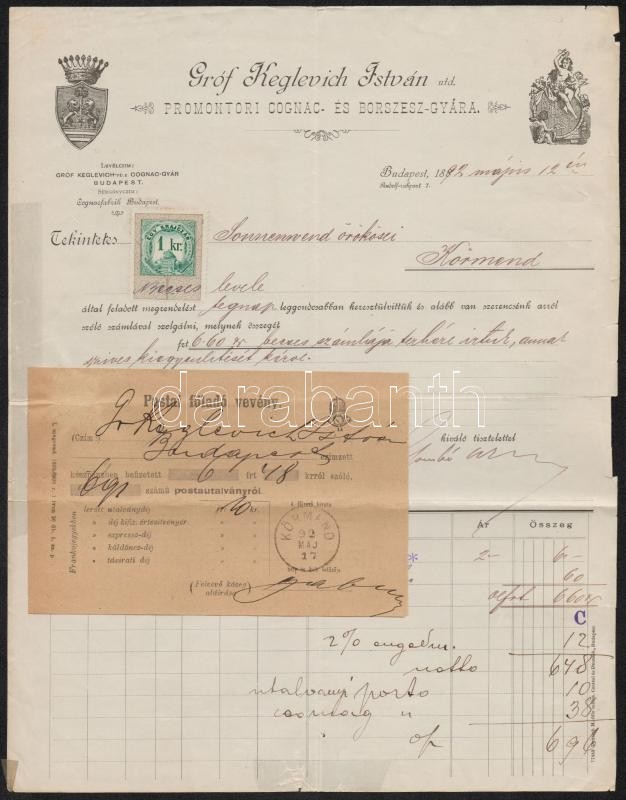 Gróf Keglevich István utd.
PROMONTORI COGNAC- ÉS BORSZESZ-GYÁRA.
LEVÉLCZIM:
GRÓF KEGLEVICH COGNAC-GYÁR
BUDAPEST.
SÜRGÖNYCZIM:
Cognacfabrik Budapest.
Budapest, 1892 május 12 én
Rudolf-rakpart 7.
Tekintetes Sonnenwend örökösei
Körmend
1 kr.
Becses levele
által feladott megrendelést tegnap leggondosabban keresztülvittük és alább van szerencsénk arról
szóló számlával szolgálni, melynek összegét
frt 6.60 becses számlája terhére irtuk, annak
szives kiegyenlitését kérve.
darabanth
Postai föladó vevény.
(Czím) Gr Keglevich István
Budapest czímzett
készpénzben befizetett 6 frt 48 krról szóló,
számú postautalványról.
kiváló tisztelettel
Frankojegyekben
lerótt utalványdíj 10 kr.
» díj kifiz. értesitvényér
» expressz-díj
» küldöncz-díj
» távirati díj
KÖRMEND
92
MÁJ
17
(Felzevő közeg
aláírása)
Ár Összeg
2- 6-
60
6.60
C
2% engedm. 12
netto 648
utalványi porto 10
csomag " 38
696